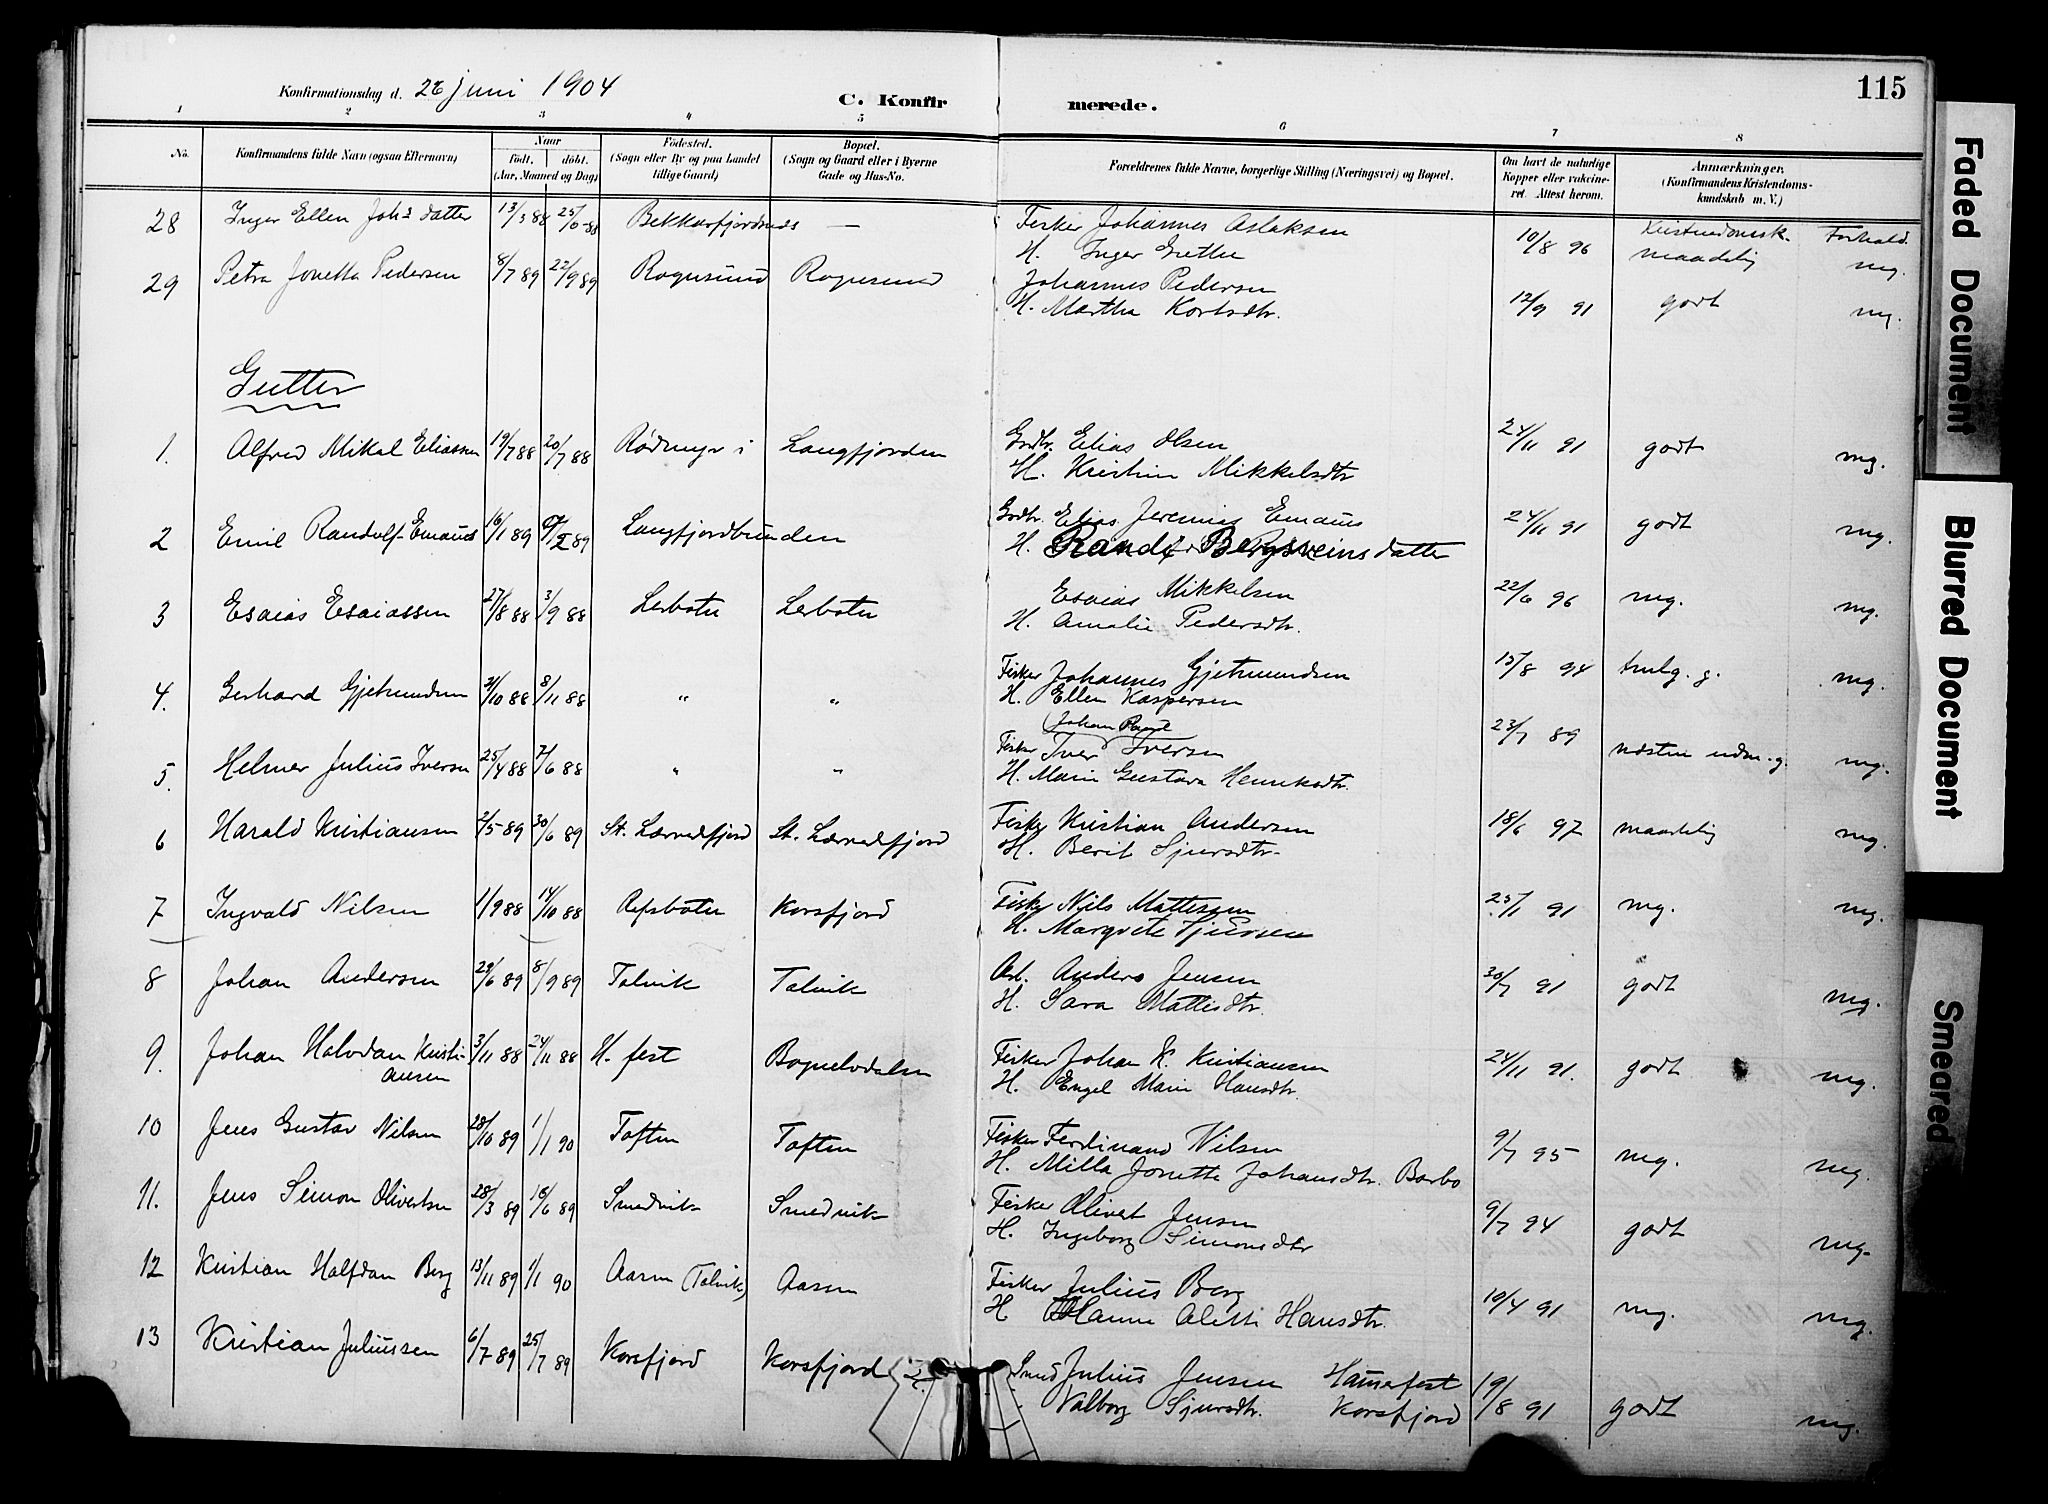 115
Konfirmationsdag d. 26 juni 1904
C. Konfir merede.
1 2 3 4 5 6 7 8
No. Konfirmandens fulde Navn (ogsaa Efternavn) Naar født. døbt. (Aar, Maaned og Dag) Fødested. (Sogn eller By og paa Landet tillige Gaard) Bopæl. (Sogn og Gaard eller i Byerne Gade og Hus-No. Forældrenes fulde Navne, borgerlige Stilling (Næringsvei) og Bopæl. Om havt de naturlige Kopper eller vakcineret. Attest herom. Anmærkninger. (Konfirmandens Kristendomskundskab m. V.)
28 Inger Ellen Johs datter 13/3 88 Bekkarfjordnes — Fisker Johannes Aslaksen 19/8 96 Kristendomsk. maadelig Forhold. mg.
H. Inger Grethe
29 Petra Jonetta Pedersen 8/7 89 22/9 89 Rognsund Rognsund Johannes Pedersen 12/9 91 godt mg.
H. Martha Kortsdtr.
Gutter
1. Alfred Mikal Eliassen 19/7 88 20/7 88 Rødmyr i Langfjorden Grdbr. Elias Olsen 24/11 91 godt mg.
H. Kristine Mikkelsdtr
2 Emil Randolf Emaus 16/1 89 /2 89 Langfjordbunden Grdbr. Elias Jeremias Emaus 24/11 91 godt mg.
H. Randi Bergsveinsdatter
3 Esaias Esaiassen 27/8 88 3/9 88 Lerbotn Lerbotn Esaias Mikkelsen 22/6 96 mg. mg.
H. Amalie Pedersdtr.
4. Gerhard Gjetmundsen 2/10 88 8/11 88 " " Fisker Johannes Gjetmundsen 15/8 94 temlg. g. mg.
H. Ellen Kaspersen
5. Helmer Julius Iversen 25/4 88 7/6 88 " " Fisker Iver Iversen 23/7 89 næsten udm. g. mg.
H. Marie Gustava Henriksdtr.
6 Harald Kristiansen 2/5 89 30/6 89 St. Lerredfjord St. Lerredfjord Fisker Kristian Andersen 18/6 97 maadelig mg.
H. Berit Sjursdtr.
7 Ingvald Nilsen 1/9 88 14/10 88 Refsbotn Korsfjord Fisker Nils Mattisen 25/1 91 mg. mg.
H. Margrete Sjursen
8 Johan Andersen 29/6 89 8/9 89 Talvik Talvik Arb. Anders Jensen 30/7 91 godt mg.
H. Sara Mattisdtr.
9. Johan Halvdan Kristiansen 3/11 88 24/11 88 H. fest Bognelvdalen Fisker Johan K. Kristiansen 24/11 91. godt mg.
H. Engel Marie Hansdtr.
10 Jens Gustav Nilsen 28/10 89 1/1 90 Toften Toften Fisker Ferdinand Nilsen 9/7 95 mg. mg.
H. Milla Jonette Johansdtr. Barbo
11. Jens Simon Olivertsen 28/3 89 16/6 89 Smedvik Smedvik Fisker Olivert Jensen 9/7 94 godt mg.
H. Ingeborg Simonsdtr
12 Kristian Halfdan Berg 13/11 89 1/1 90 Aasen (Talvik) Aasen Fisker Julius Berg 10/4 91 mg. mg.
H Hanne Aletta Hansdtr.
13 Kristian Juliussen 6/7 89 25/7 89 Korsfjord Korsfjord Smed Julius Jensen Hamerfest 19/8 91 godt mg.
Valborg Sjursdtr. Korsfjord
Faded Document
Blurred Document
Smeared